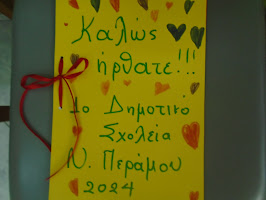 Καλώς
ήρθατε!!!
1ο Δημοτικο
Σχολεία
Ν. Περάμου
2024